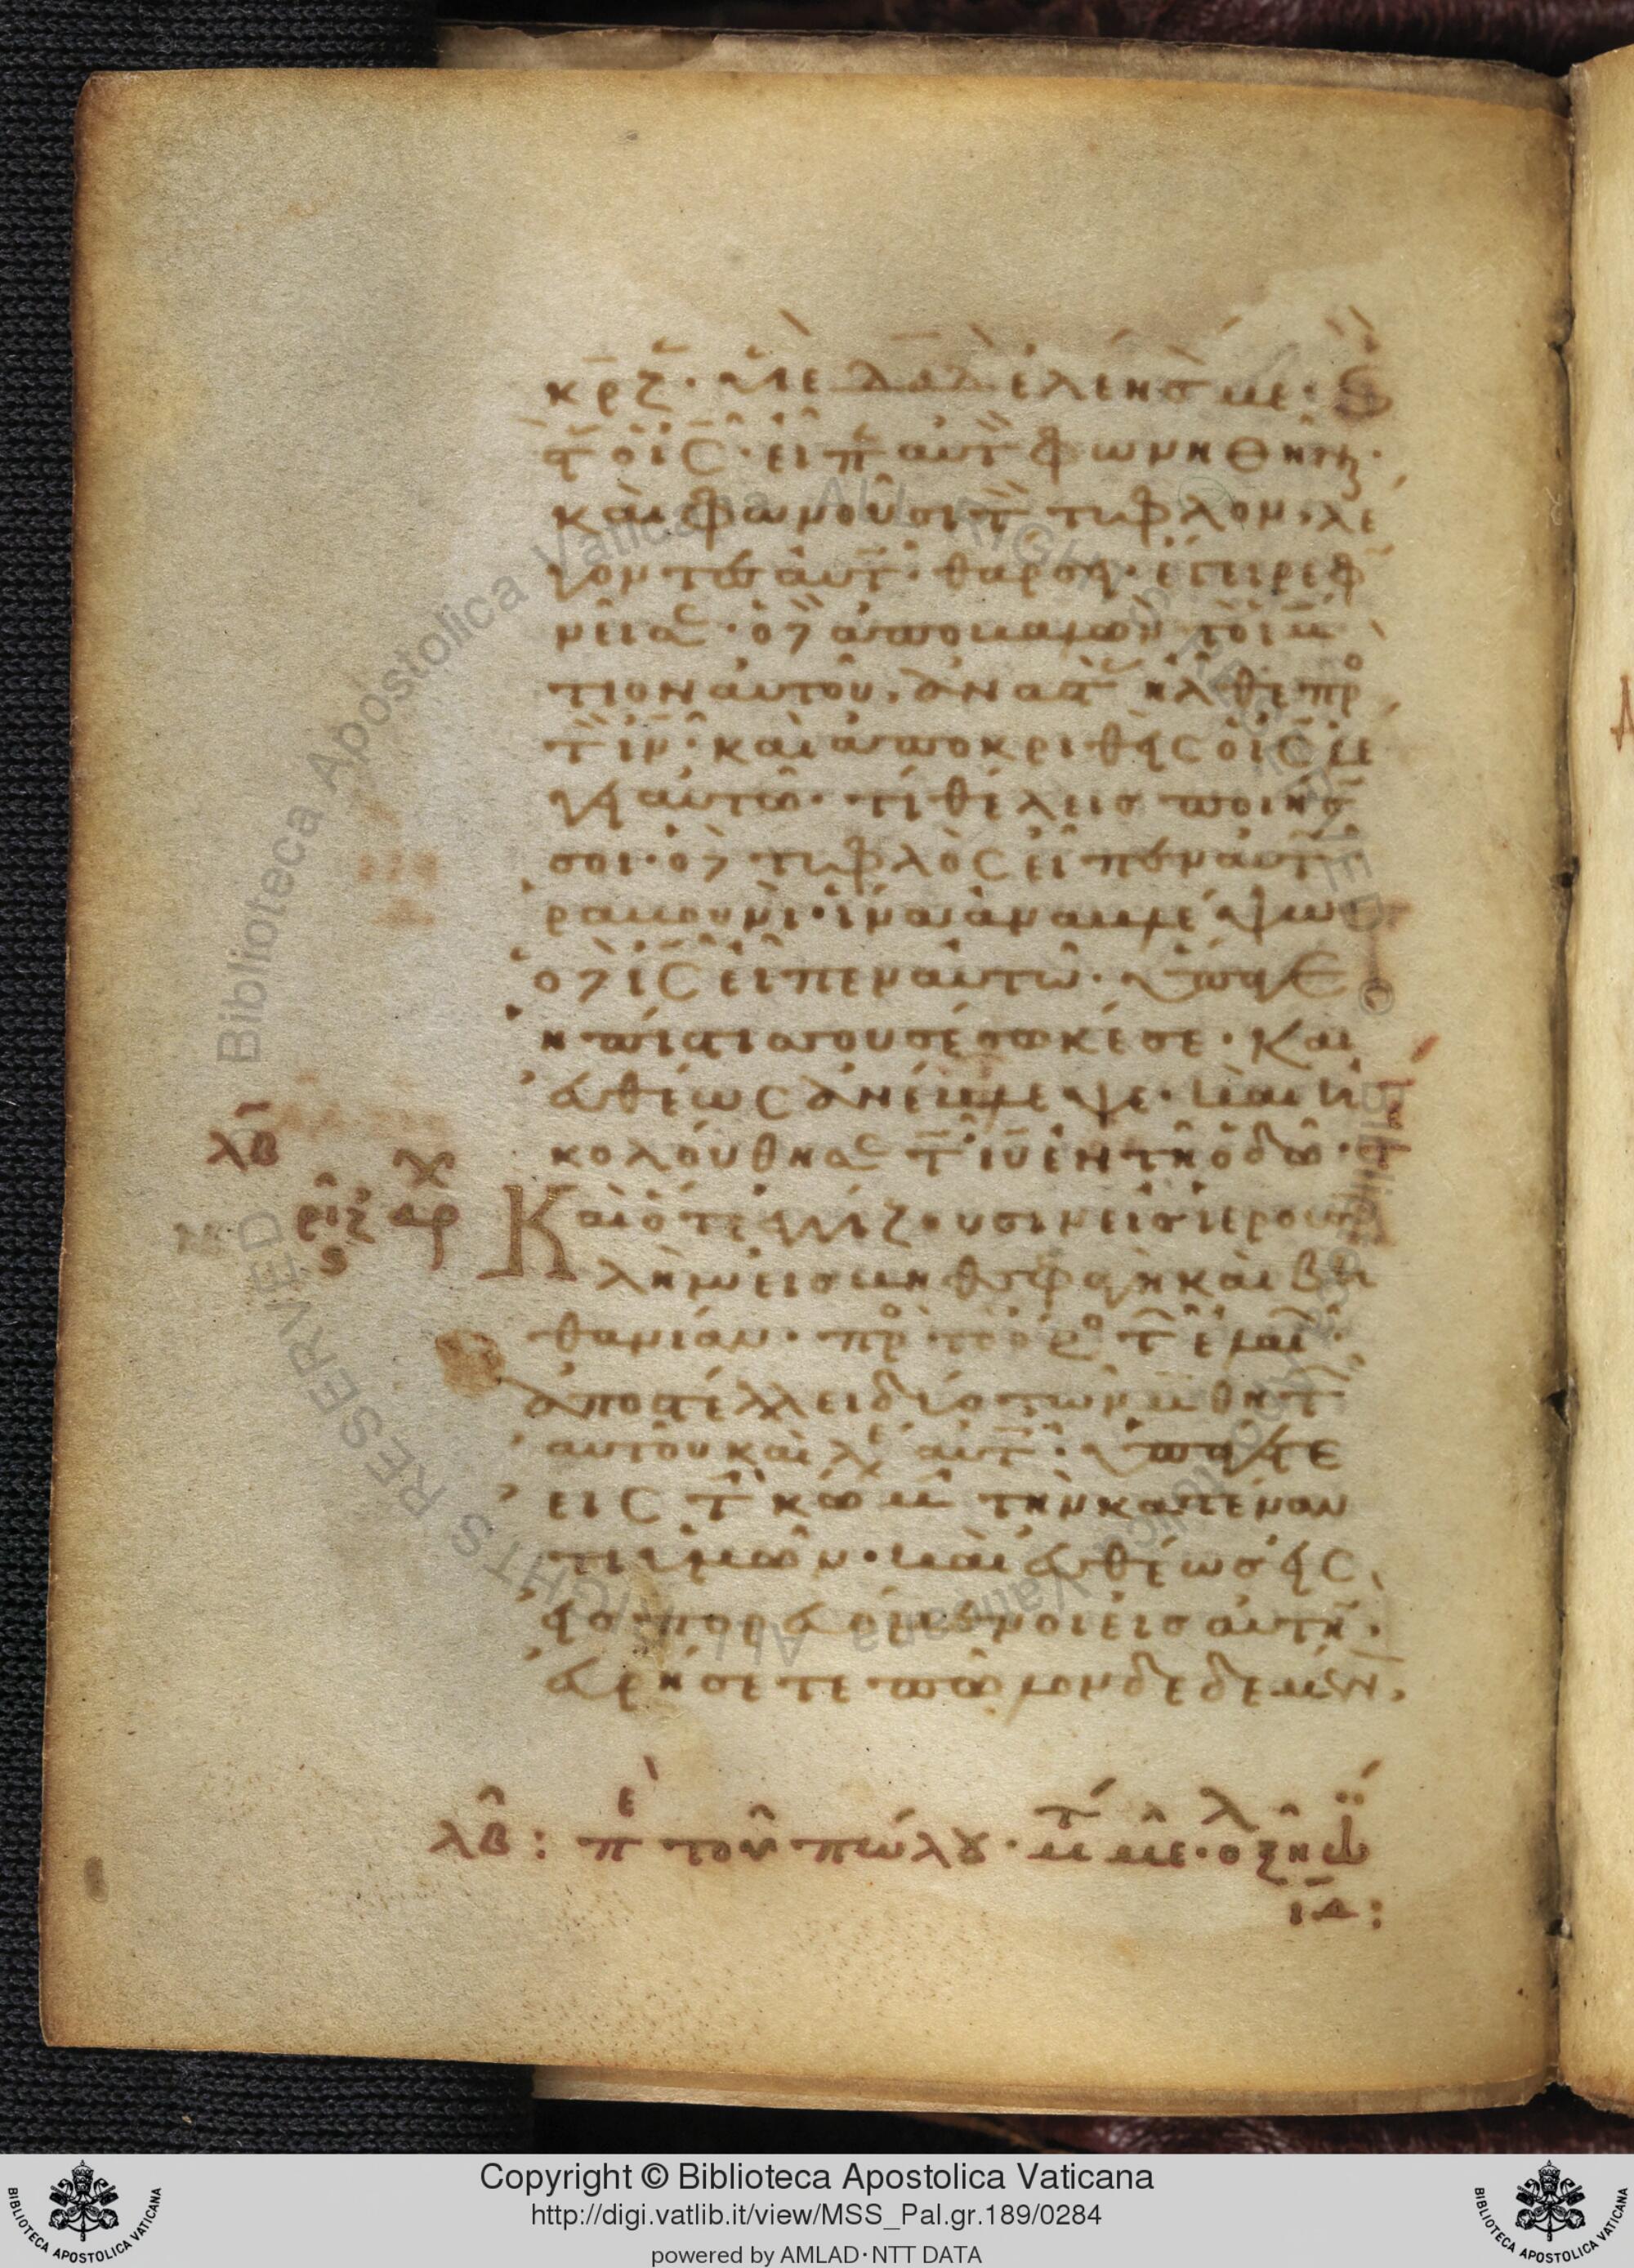 κρζ · υἱὲ δαδ ἐλέησ με · Ϛ
στ ὁ ις · εἶπ αὐτ φωνηθῆν ·
καὶ φωνοῦσι τ τυφλὸν, λέ
γοντες αὐτ · θάρσει · ἔγειρε φ
νεῖ σε · ὁ δὲ ἀποβαλὼν τὸ ἱμ
τιον αὐτοῦ, ἀναστ ἦλθε πρ
τ ιν · καὶ ἀποκριθεὶς ὁ ις λέ
γει αὐτῶ · τί θέλεις ποιήσ
σοι · ὁ δὲ τυφλὸς εἶπεν αὐτ ·
ραβουνὶ · ἵνα ἀναβλέψω
ὁ δὲ ις εἶπεν αὐτῶ · ὕπαγε
ἡ πίστις σου σέσωκέ σε · Και
εὐθέως ἀνέβλεψε · καὶ ἠ
κολούθησε τ ιυ ἐν τῆ ὁδῶ ·
λβ
ριζ αρ
ς
Καὶ ὅτε ἐγγίζουσιν εἰς ιερουσα
λὴμ εἰς βηθσφαγὴ καὶ βη
θανίαν · πρ τὸ ὄρο τ ἐλαι ·
ἀποστέλλει δύο τῶν μαθητ
αὐτοῦ καὶ λέ αὐτ · ὑπάγετε
εἰς τ κώμ τὴν κατέναν
τι ὑμῶν · καὶ εὐθέως εἰσ
εἰσπορευόμενοι εἰς αὐτὴν ·
εὑρήσετε πῶλον δεδεμένν,
λβ : πε τοῦ πώλου · μτ με · ο ζη ιω
ιδ :
Copyright © Biblioteca Apostolica Vaticana
http://digi.vatlib.it/view/MSS_Pal.gr.189/0284
powered by AMLAD·NTT DATA
BIBLIOTECA APOSTOLICA VATICANA
BIBLIOTECA APOSTOLICA VATICANA